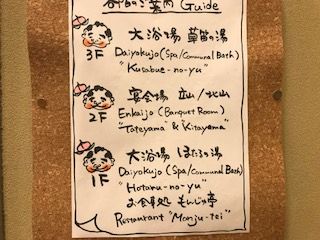 館のご案内 Guide
3F 大浴場 草笛の湯
Daiyokujo (Spa/Communal Bath)
"Kusabue-no-yu"
2F 宴会場 立山/北山
Enkaijo (Banquet Room)
"Tateyama" & "Kitayama"
1F 大浴場 ほたるの湯
Daiyokujo (Spa/Communal Bath)
"Hotaru-no-yu"
お食事処 もんじゅ亭
Restaurant "Monju-tei"